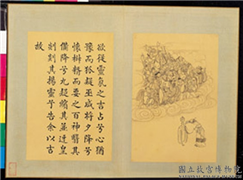 欲從靈氛之吉占兮心猶
豫而狐疑巫咸將夕降兮
懷椒糈而要之百神翳其
備降兮九疑繽其並迎皇
剡剡其揚靈兮告余以吉
故
國立故宮博物院